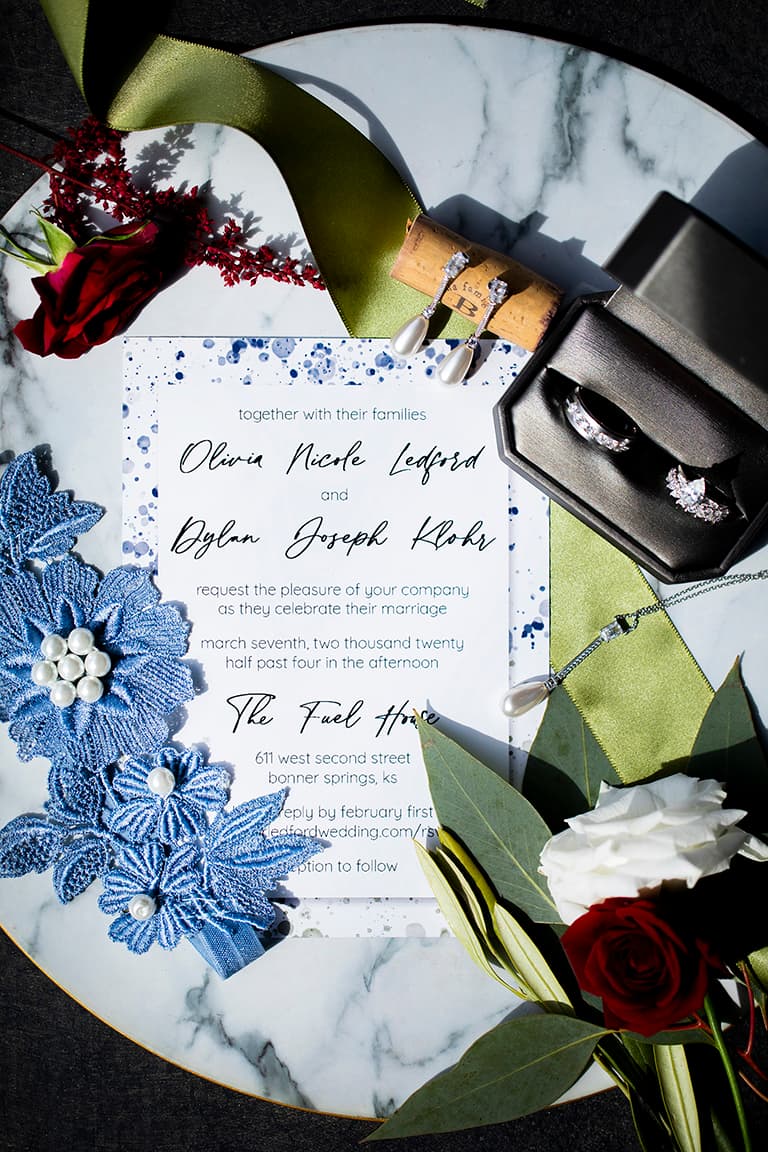 B
together with their families
Olivia Nicole Ledford
and
Dylan Joseph Klohr
request the pleasure of your company
as they celebrate their marriage
march seventh, two thousand twenty
half past four in the afternoon
The Fuel House
611 west second street
bonner springs, ks
reply by february first
ledfordwedding.com/rsv
to follow